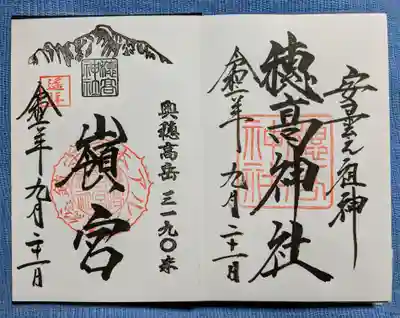 安曇元祖神
穂高神社
令和二年九月二十一日
奥穂高岳三一九〇米
穂高神社
嶺宮
遥拝
令和二年九月二十一日